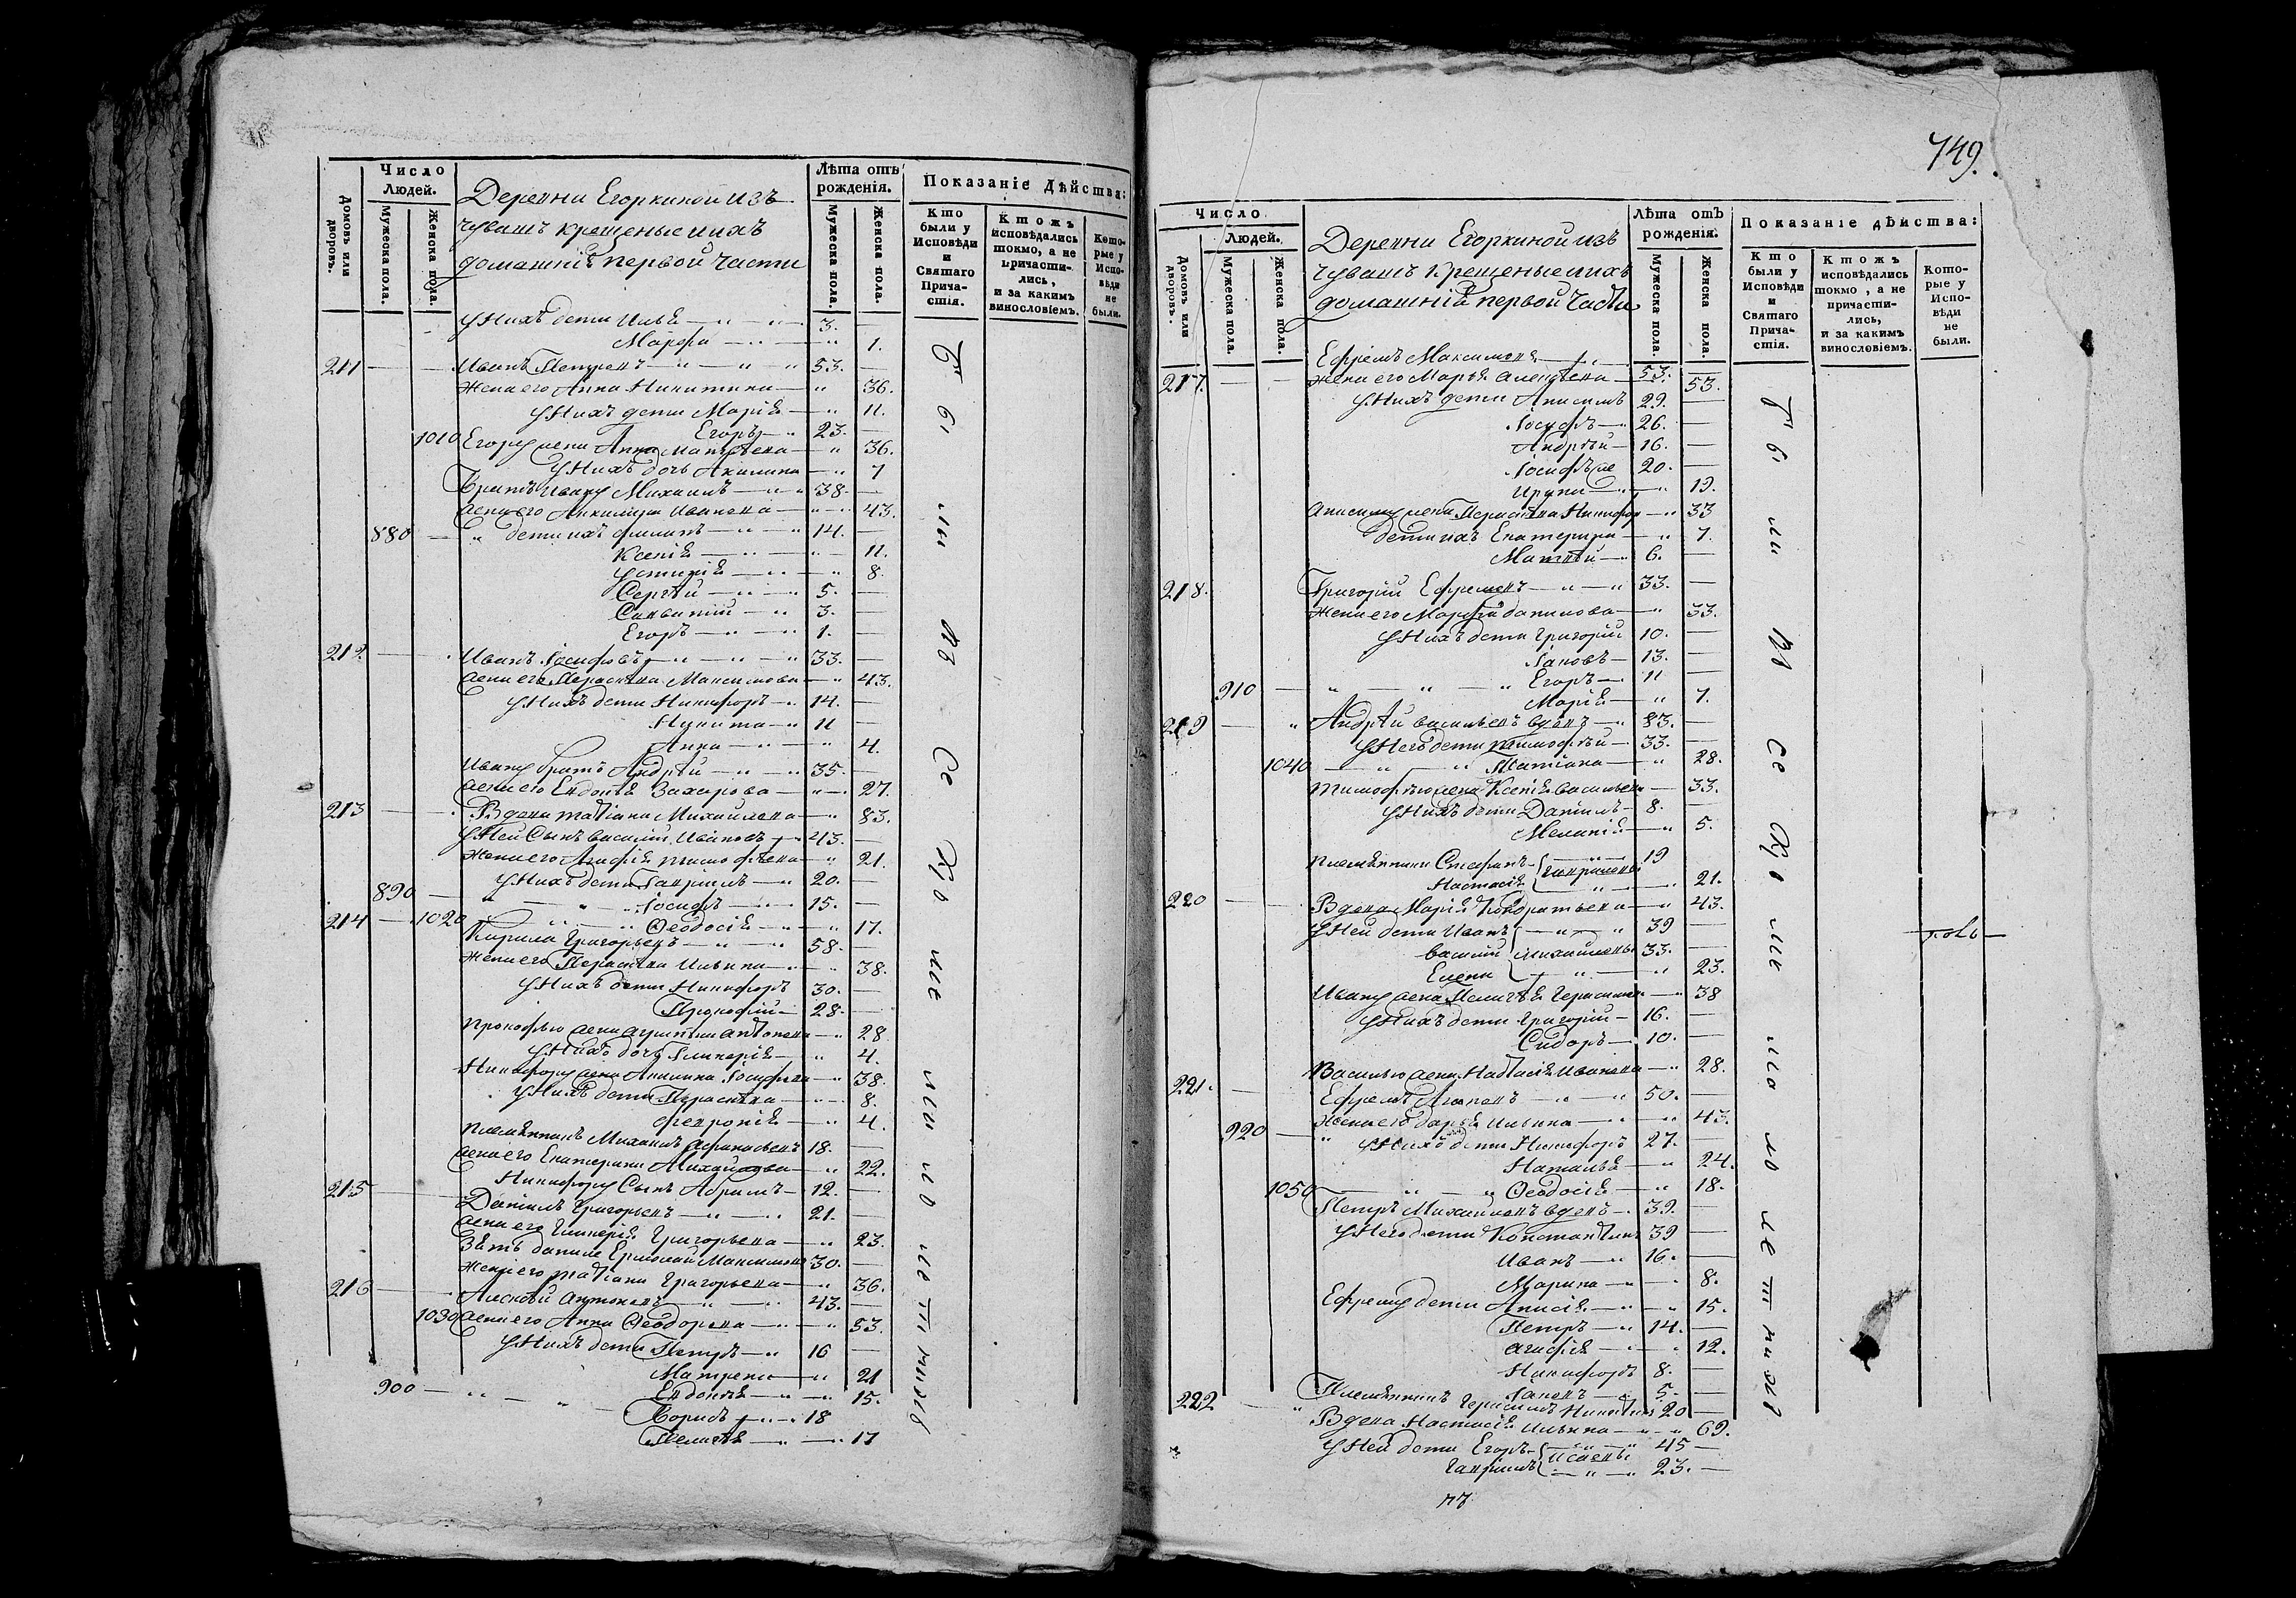 Число Людей.
Домовъ или дворовъ.
Мужеска пола.
Женска пола.
Деревни Егоркиной изъ
чувашъ крещеные и ихъ
домашнія первой части
Лѣта отъ рожденія.
Мужеска пола.
Женска пола.
Показаніе Дѣйства:
Кто были у Исповѣди и Святаго Причастія.
Ктожъ исповѣдались токмо, а не причастились, и за какимъ винословіемъ.
Которые у Исповѣди не были.
У Нихъ дети Илья 3.
Марфа 1.
211 Иванъ Петровъ 53.
Жена его Анна Никитина 36.
У Нихъ дети Марія 11.
Егоръ 23.
1010 Егору жена Анна Матвѣева 36.
У Нихъ дочь Акилина 7
Братъ Ивану Михаилъ 38.
жена его Акилина Иванова 43.
880 дети ихъ Филипъ 14.
Ксенія 11.
Устинія 8.
Сергѣй 5.
3.
Егоръ 1.
212. Иванъ Іосифовъ 33.
жена его Параскева Максимова 43.
У Нихъ дети Никифоръ 14.
Никита 11
Анна 4.
Ивану братъ Андрѣй 35.
жена его Евдокія Захарова 27.
213 Вдова Татіана Михайлова 83.
У Ней Сынъ Василій Ивановъ 43.
Жена его Агафія Тимофѣева 21.
У Нихъ дети Гавріилъ 20.
890 Іосифъ 15.
214 1020 Ѳеодосія 17.
Кирила Григорьевъ 58.
Жена его Параскева Ильина 38.
У Нихъ дети Никифоръ 30.
Прокофій 28.
Прокофью жена Антонова 28
У Нихъ дочь Гликерія 4.
Никифору жена Акилина Іосифова 38.
У Нихъ дети Параскева 8.
Феврония 4.
Племянникъ Михаилъ Афанасьевъ 18.
жена его Екатерина Михайлова 22.
Никифору Сынъ Абрамъ 12.
215 Даніилъ Григорьевъ 21.
жена его Гликерія Григорьева 23.
Зять Данилѣ Ермолай Максимовъ 30.
Жена его Татіана Григорьева 36.
216 Алексѣй Антоновъ 43.
1030 жена его Анна Ѳеодорова 53.
У Нихъ дети Петръ 16
Матрена 21
900 Евдокія 15.
Борисъ 18
Пелагѣя 17
749.
Число Людей.
Домовъ или дворовъ.
Мужеска пола.
Женска пола.
Деревни Егоркиной изъ
чувашъ Крещеные и ихъ
домашній первой части
Лѣта отъ рожденія.
Мужеска пола.
Женска пола.
Показаніе дѣйства:
Кто были у Исповѣди и Святаго Причастія.
Ктожъ исповѣдались токмо, а не причастились, и за какимъ винословіемъ.
Которые у Исповѣди не были.
Ефремъ Максимовъ 53.
217. Жена его Марья Алексѣева 53.
У Нихъ дети Анисимъ 29.
Іосифъ 26.
Андрѣй 16.
Іосифъ же 20.
Ирина 19.
Анисиму жена Параскева Никифор 33
дети ихъ Екатерина 7.
Матвѣй 6.
218. Григорій Ефремовъ 33.
Жена его Марфа Данилова 33.
У Нихъ дети Григорій 10.
Іаковъ 13.
910 Егоръ 11
Марія 7.
219 Андрѣй Васильевъ вдовъ 83.
У Него дети Тимофѣй 33.
1040 Татіана 28.
Тимофѣю жена Ксенія Васильева 33.
У Нихъ дети Даніилъ 8.
Меланія 5.
Племянники Стефанъ Гавриловы 19
Настасія 21.
220 Вдова Марія Кондратьева 43.
У Ней дети Иванъ 39
Василій Михайловы 33.
Елена 23.
Ивану жена Пелагѣя Герасимова 38
У Нихъ дети Григорій 16.
Сидоръ 10.
Василью жена Настасія Иванова 28.
221. Ефремъ 50.
Жена его Дарья Ильина 43.
920 У Нихъ дети Никифоръ 27.
Наталья 24.
1050 Ѳеодосія 18.
Петръ Михайловъ вдовъ 39.
У Него дети Константинъ 39
Иванъ 16.
Марина 8.
Ефрему дети Анисія 15.
Петръ 14.
Агафія 12.
Никифоръ 8.
Іаковъ 5.
Племянникъ Герасимъ 20
222 Вдова Настасія Ильина 69.
У Ней дети Егоръ Исаевы 45
Гавріилъ 23.